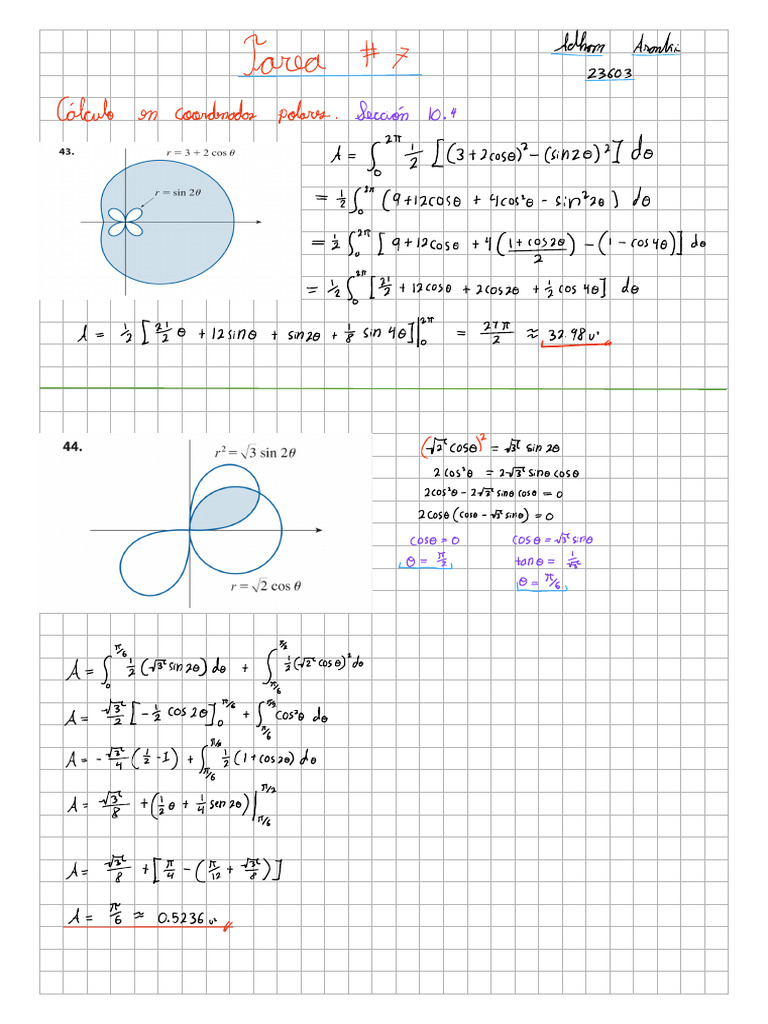 Tarea # 7
23603
Cálculo en coordenadas polares. Sección 10.4
43.
r = 3 + 2 cos θ
r = sin 2θ
A = ∫₀^2π 1/2 [(3+2cosθ)² − (sin2θ)²] dθ
= 1/2 ∫₀^2π (9+12cosθ + 4cos²θ − sin²2θ) dθ
= 1/2 ∫₀^2π [9+12cosθ + 4((1+cos2θ)/2) − (1−cos4θ)] dθ
= 1/2 ∫₀^2π [21/2 + 12cosθ + 2cos2θ + 1/2 cos 4θ] dθ
A = 1/2 [21/2 θ + 12sinθ + sin2θ + 1/8 sin 4θ]|₀^2π = 21π/2 ≈ 32.98 u²
44.
r² = √3 sin 2θ
r = √2 cos θ
(√2 cosθ)² = √3 sin 2θ
2cos²θ = 2√3 sinθ cosθ
2cos²θ − 2√3 sinθ cosθ = 0
2cosθ (cosθ − √3 sinθ) = 0
cosθ = 0 cosθ = √3 sinθ
θ = π/2 tanθ = 1/√3
θ = π/6
A = ∫₀^π/6 1/2 (√3 sin2θ) dθ + ∫_π/6^π/2 1/2 (√2 cosθ)² dθ
A = √3/2 [−1/2 cos 2θ]₀^π/6 + ∫_π/6^π/2 cos²θ dθ
A = −√3/4 (1/2 − 1) + ∫_π/6^π/2 1/2 (1+cos2θ) dθ
A = √3/8 + (1/2 θ + 1/4 sen2θ)|_π/6^π/2
A = √3/8 + [π/4 − (π/12 + √3/8)]
A = π/6 ≈ 0.5236 u²